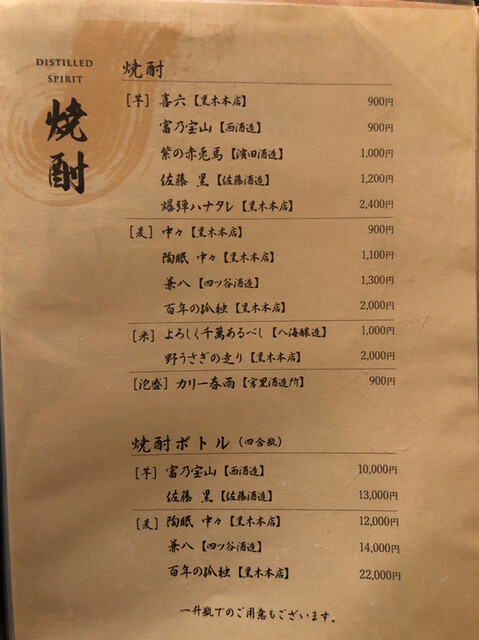 DISTILLED
SPIRIT
焼酎
焼酎
[芋] 喜六【黒木本店】 900円
富乃宝山【西酒造】 900円
紫の赤兎馬【濱田酒造】 1,000円
佐藤 黒【佐藤酒造】 1,200円
爆弾ハナタレ【黒木本店】 2,400円
[麦] 中々【黒木本店】 900円
陶眠 中々【黒木本店】 1,100円
兼八【四ツ谷酒造】 1,300円
百年の孤独【黒木本店】 2,000円
[米] よろしく千萬あるべし【八海醸造】 1,000円
野うさぎの走り【黒木本店】 2,000円
[泡盛] カリー春雨【宮里酒造所】 900円
焼酎ボトル(四合瓶)
[芋] 富乃宝山【西酒造】 10,000円
佐藤 黒【佐藤酒造】 13,000円
[麦] 陶眠 中々【黒木本店】 12,000円
兼八【四ツ谷酒造】 14,000円
百年の孤独【黒木本店】 22,000円
一升瓶でのご用意もございます。